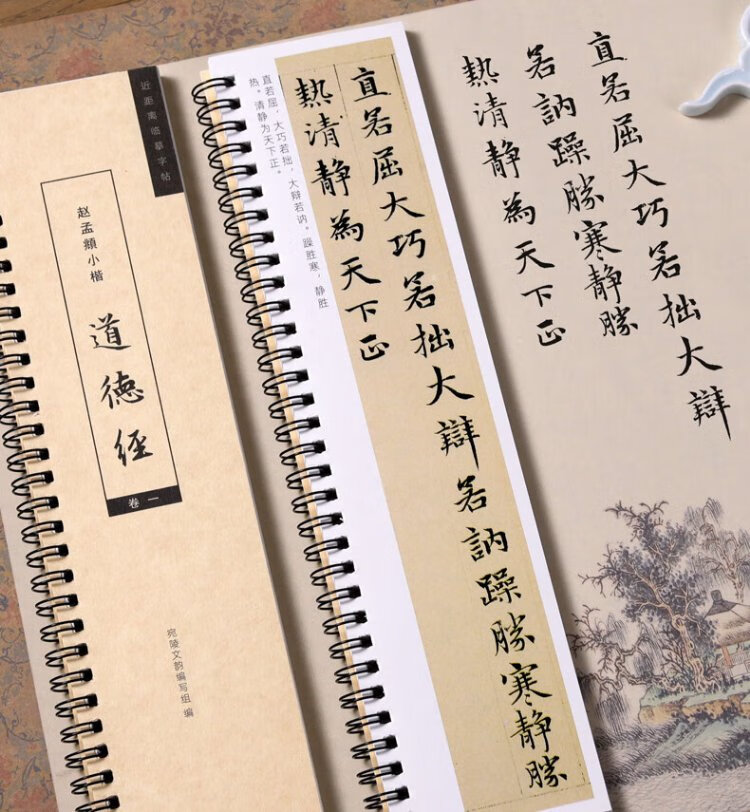 近距离临摹字帖
赵孟頫小楷
道德经
卷一
宛陵文韵编写组 编
直若屈，大巧若拙，大辩若讷。躁胜寒，静胜
热。清静为天下正。
直若屈大巧若拙大辯若訥躁勝寒静勝
熱清静為天下正
直若屈大巧若拙大辯
若訥躁勝寒静勝
熱清静為天下正